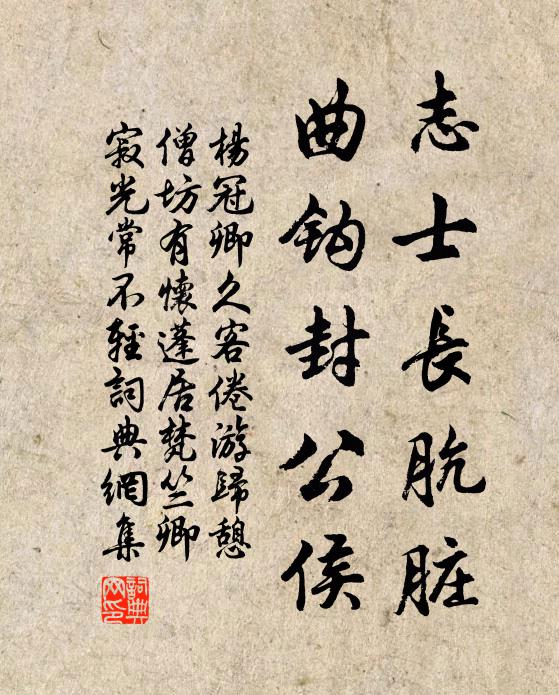 志士長肮脏
曲钩封公侯
楊冠卿久客倦游歸憩
僧坊有懷蓬居梵竺卿
寂光常不輕詞典網集
詞典网印